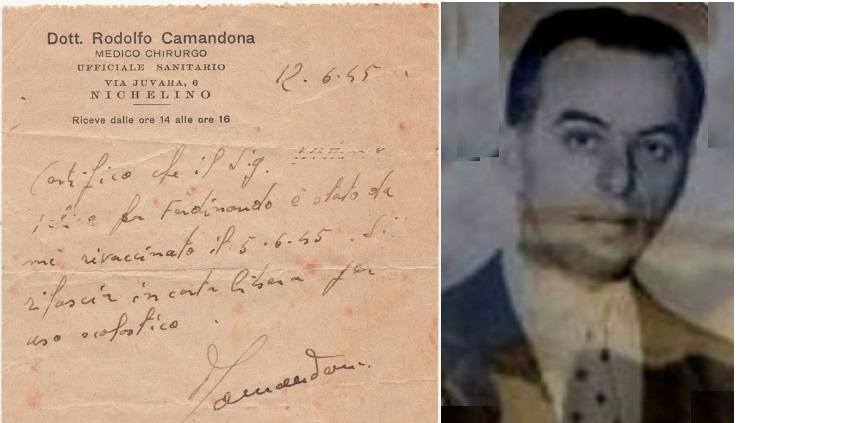 Dott. Rodolfo Camandona
MEDICO CHIRURGO
UFFICIALE SANITARIO
VIA JUVARA, 6
NICHELINO
12.6.45
Riceve dalle ore 14 alle ore 16
Certifico che il Sig.
fu Ferdinando è stato da
me rivaccinato il 5.6.45. Si
rilascia in carta libera per
uso scolastico.
Camandona